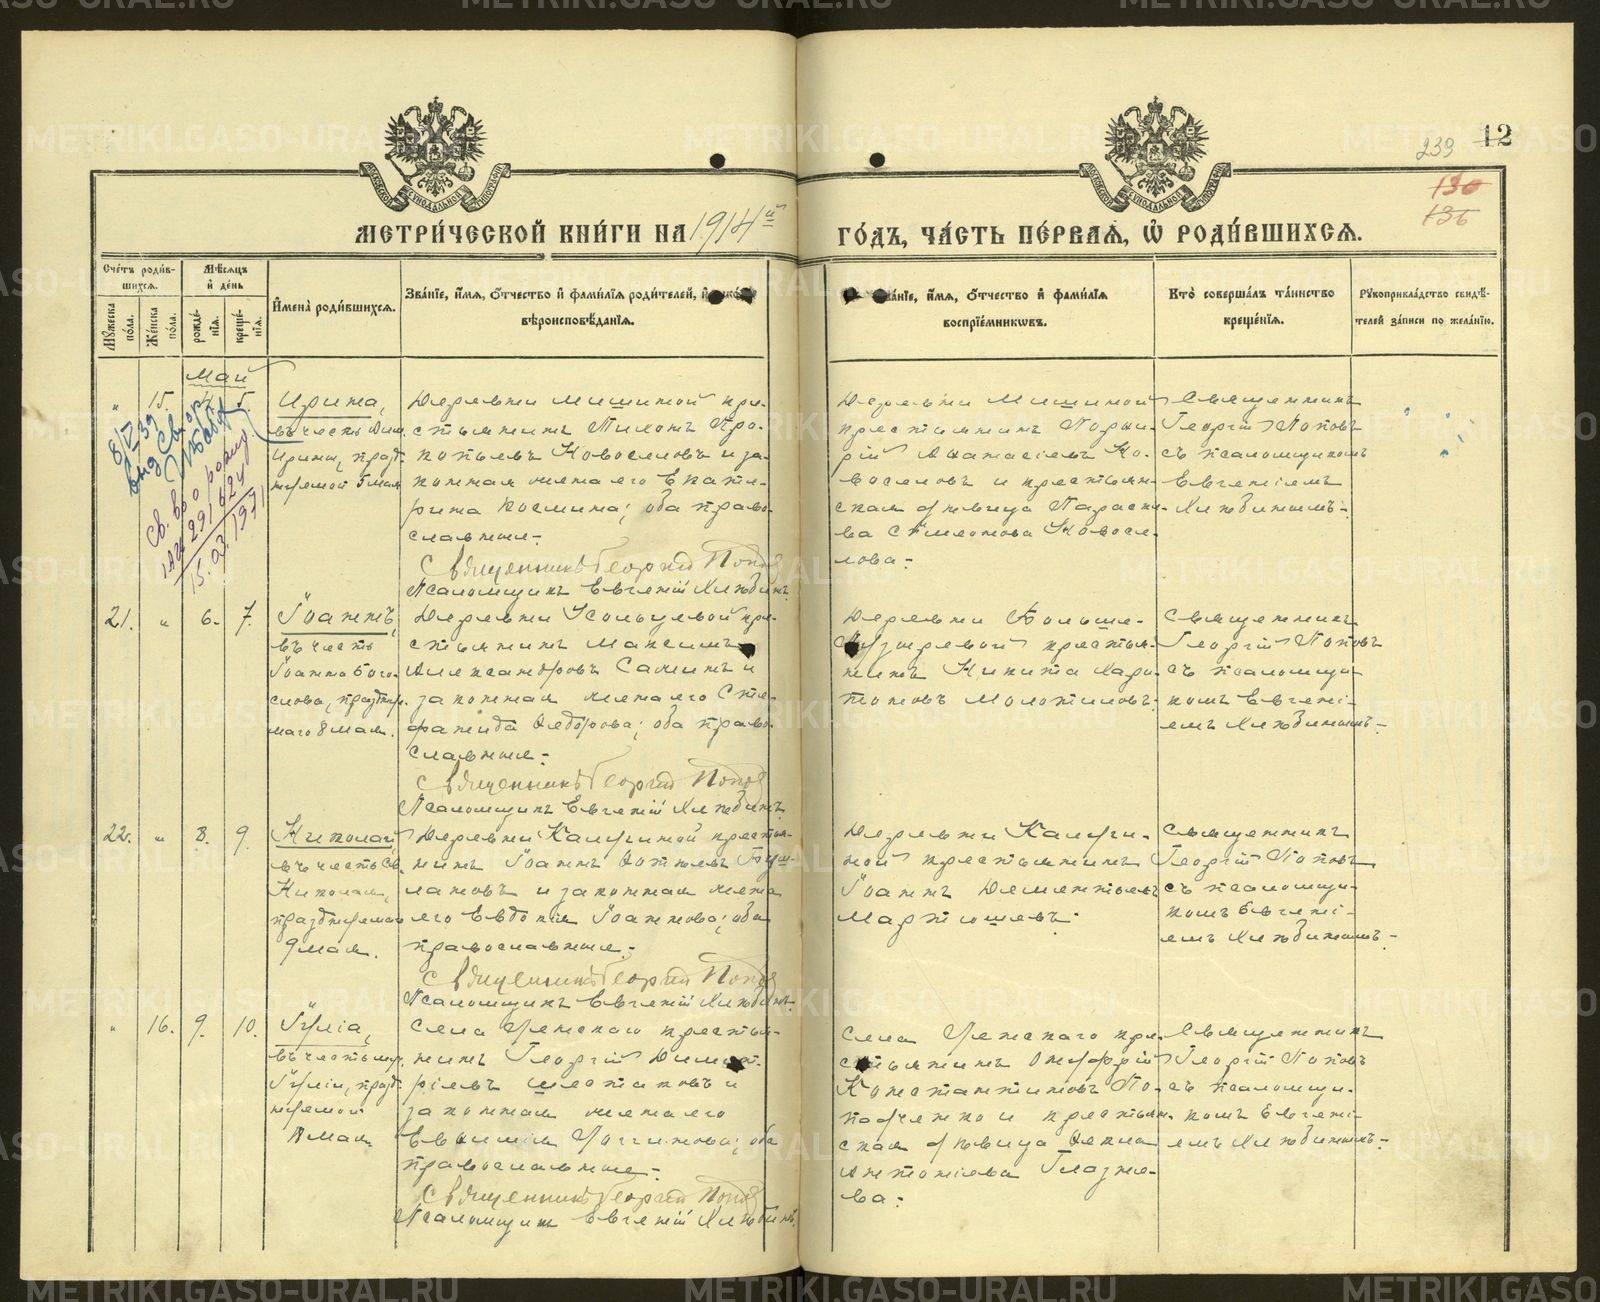 METRIKI.GASO-URAL.RU
239 12
130
136
МЕТРИ́ЧЕСКОЙ КНИ́ГИ НА 1914й
ГО́ДЪ, ЧА́СТЬ ПЕ́РВАЯ, Ѡ҆ РОДИ́ВШИХСЯ.
Сче́тъ роди́в-
шихся.
Мѣ́сяцъ
и҆ де́нь
Му́жеска по́ла.
Же́нска по́ла.
рожде́-
нїѧ.
креще́-
нїѧ.
И҆мена̀ роди́вшихся.
Зва́нїе, и҆́мѧ, о҆́тчество и҆ фами́лїѧ роди́телей, и҆
вѣроисповѣ́данїѧ.
и҆́мѧ, о҆́тчество и҆ фами́лїѧ
воспрїе́мниковъ.
Кто̀ соверша́лъ та́инство
креще́нїѧ.
Рꙋкоприкла́дство свидѣ́-
телей за́писи по жела́нїю.
Май
" 15. 5.
Ирина,
въ честь
Ирины, празд-
нуемой 5 мая
Деревни Мишиной кре-
стьянинъ Про-
копьевъ Новоселовъ и за-
конная жена его Екате-
рина Космина; оба право-
славные.
Священникъ Георгій Поповъ
Псаломщикъ Евгеній Хлѣбинъ
Деревни Мишиной
крестьянинъ Порфи-
рій Аѳанасіевъ Но-
воселовъ и крестьян-
ская дѣвица Параске-
ва Симеонова Новосе-
лова.
Священникъ
Георгій Поповъ
съ псаломщикомъ
Евгеніемъ
Хлѣбинымъ.
15.03.1971
21. " 6. 7.
Іоаннъ,
въ честь
Іоанна Бого-
слова, праздну-
маго 8 мая.
Деревни Усольцевой кре-
стьянинъ Максимъ
Александровъ Саминъ и
законная жена его Сте-
фанида Ѳедорова; оба право-
славные.
Священникъ Георгій Поповъ
Псаломщикъ Евгеній Хлѣбинъ
Деревни Больше-
крестья-
нинъ Никита Хари-
тоновъ Молотиловъ.
Священникъ
Георгій Поповъ
съ псаломщи-
комъ Евгені-
емъ Хлѣбинымъ.
22. " 8. 9.
Николай,
въ честь Св.
Николая,
празднуемаго
9 мая.
Деревни Калугиной крестья-
нинъ Іоаннъ
и законная жена
его Евдокія Іоаннова; оба
православные.
Священникъ Георгій Поповъ
Псаломщикъ Евгеній Хлѣбинъ
Деревни Калуги-
ной крестьянинъ
Іоаннъ Дементьевъ
Мартюшевъ.
Священникъ
Георгій Поповъ
съ псаломщи-
комъ Евгені-
емъ Хлѣбинымъ.
" 16. 9. 10.
Гликерія,
въ честь муч.
празд-
нуемой
мая
Села крестья-
нинъ Георгій Димит-
ріевъ Шестаковъ и
законная жена его
Евѳимія Логгинова; оба
православные.
Священникъ Георгій Поповъ
Псаломщикъ Евгеній Хлѣбинъ
Села кре-
стьянинъ Онуфрій
Константиновъ По-
и крестьян-
ская дѣвица Ѳекла
Антоніева Глазко-
ва.
Священникъ
Георгій Поповъ
съ псаломщи-
комъ Евгені-
емъ Хлѣбинымъ.